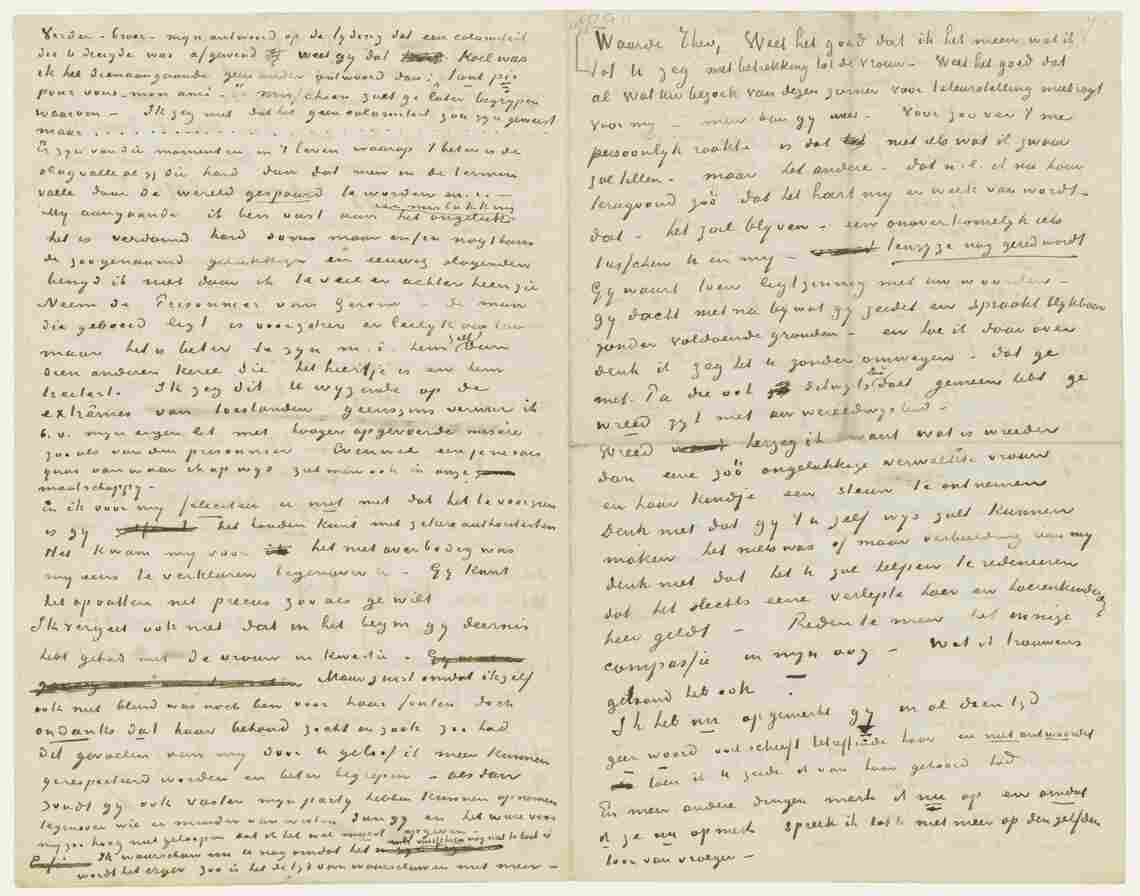 Verder – broer – mijn antwoord op de tyding dat een calamiteit
die U dreigde was afgewend weet gy dat Koel was
ik heb dienaangaande geen ander antwoord dan: tant pis
pour vous – mon ami – misschien zult ge later begrypen
waarom – Ik zeg niet dat het geen calamiteit zou zyn geweest
maar . . . . . . . . . . . . . . .
Er zyn van die momenten in 't leven waarop 't beter is de
valle door de wereld gespaard te worden en..—
My aangaande ik ben vast aan het ongeluk
de mislukking
het is verdomd hard soms maar enfin nogthans
de zoogenaamd gelukkigen en eeuwig slagenden
benyd ik niet daar ik te veel er achter heen zie
Neem de Prisonnier van Gerome – de man
die geboeid ligt is
maar het is beter te zyn m.i. hem zelf dan
dien anderen kerel die het heertje is en hem
treitert. Ik zeg dit U wyzende op de
extrêmes van toestanden geenszins verwar ik
b.v. myn eigen lot met hooger opgevoerde misère
zooals van dien prisonnier Evenwel een je ne sais
quoi van waar ik op wys zal men ook in onze
maatschappy –
En ik voor my feliciteer U niet met dat het te voorzien
is gy het houden kunt met zekere authoriteiten
Het kwam my voor het niet overbodig was
my eens te verklaren tegenover U – Gy kunt
het opvatten net precies zooals ge wilt
Ik vergeet ook niet dat in het begin gy deernis
hebt gehad met de vrouw in kwestie –
Maar juist omdat ikzelf
ook niet blind was noch ben voor haar fouten doch
ondanks dat haar behoud zocht en zoek zoo had
dit gevoelen van my door U geloof ik meer kunnen
gerespecteerd worden en beter begrepen – als dan
zoudt gy ook vaster myn party hebben kunnen opnemen
tegenover wie er minder van wisten dan gy en het ware voor
my zoo hoog niet geloopen dat ik het wel moest opgeven
Ik waarschuw nu U nog omdat het misschien nog niet te laat is
wordt het erger zoo is het de tyd van waarschuwen niet meer –
Waarde Theo, Weet het goed dat ik het meen wat ik
tot U zeg met betrekking tot de vrouw – Weet het goed dat
al wat Uw bezoek van dezen zomer voor teleurstelling meebragt
voor my – meer dan gy wees – Voor zoo ver 't me
persoonlyk raakte is dat niet iets wat ik zwaar
zal tillen – maar het andere – dat n.l. ik nu haar
terugvond zóó dat het hart my er week van wordt –
dat – het zal blyven – een onoverkomelyk iets
tusschen U en my – tenzy ze nog gered wordt
Gy waart toen ligtzinnig met uw woorden –
gy dacht niet na by wat gy zeidet en spraakt blykbaar
zonder voldoende gronden – en hoe ik daar over
denk ik zeg het U zonder omwegen – dat ge
met Pa die ook dit wys doet gemeens hebt ge
wreed zyt met uw wereldwysheid –
Wreed herzeg ik want wat is wreeder
dan eene zóó ongelukkige verwelkte vrouw
en haar kindje een steun te ontnemen
Denk niet dat gy 't U zelf wys zult kunnen
maken het niets was of maar verbeelding van my
denk niet dat het U zal helpen te redeneeren
dat het slechts eene verlepte hoer en hoerenkinderen
hier geldt – Reden te meer tot innige
compassie in myn oog – Wat ik trouwens
getoond heb ook –
Ik heb nu opgemerkt gy in al dien tyd
geen woord ooit schreeft betreffende haar en niet antwoordet
toen ik U zeide ik van haar gehoord had
En meer andere dingen merk ik nu op en omdat
ik ze nu opmerk spreek ik tot U niet meer op denzelfden
toon van vroeger –